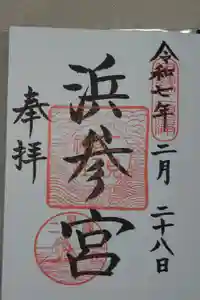 令和七年 二月 二十八日
浜参宮
奉拝